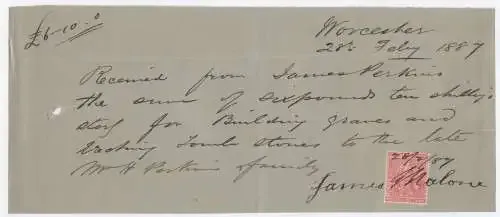 £6-10-0
Worcester
28th Feby 1887
Received from James Perkins
the sum of sixpounds ten shillg's
sterg for Building graves and
Erecting Tomb stones to the late
Mr H Perkins family
28/2/87
James Malone